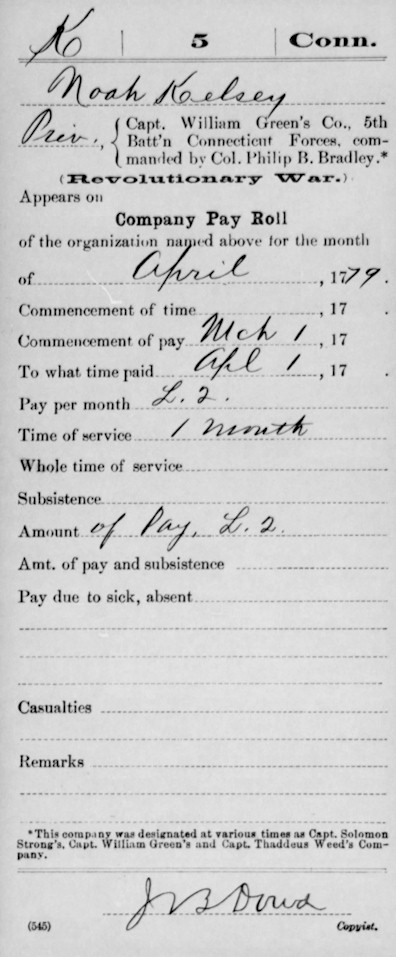 K | 5 | Conn.
Noah Kelsey
Priv., { Capt. William Green's Co., 5th
Batt'n Connecticut Forces, com-
manded by Col. Philip B. Bradley.*
(Revolutionary War.)
Appears on
Company Pay Roll
of the organization named above for the month
of April, 1779.
Commencement of time, 17 .
Commencement of pay Mch 1, 17 .
To what time paid Apl 1, 17 .
Pay per month L. 2.
Time of service 1 month
Whole time of service
Subsistence
Amount of Pay, L. 2.
Amt. of pay and subsistence
Pay due to sick, absent
Casualties
Remarks
*This company was designated at various times as Capt. Solomon
Strong's, Capt. William Green's and Capt. Thaddeus Weed's Com-
pany.
J B Dowd
(545) Copyist.